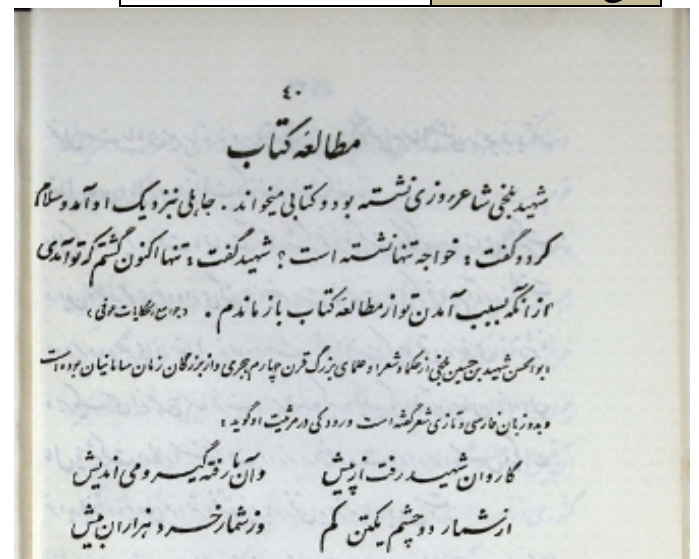 ۴۰
مطالعهٔ کتاب
شهید بلخی شاعر روزی نشسته بود و کتابی میخواند . جاهلی نزدیک او آمد و سلام
کرد و گفت : خواجه تنها نشسته است ؟ شهید گفت : تنها اکنون گشتم که تو آمدی
از آنکه بسبب آمدن تو از مطالعهٔ کتاب باز ماندم . «جوامع الحکایات عوفی»
ابوالحسن شهید بن حسین بلخی از حکما و شعرا و علمای بزرگ قرن چهارم هجری و از بزرگان زمان سامانیان بوده است
و بدو زبان فارسی و تازی شعر گفته است و رودکی در مرثیت او گوید :
کاروان شهید رفت از پیش وآن ما رفته گیر و می اندیش
از شمار دو چشم یکتن کم وز شمار خرد هزاران بیش